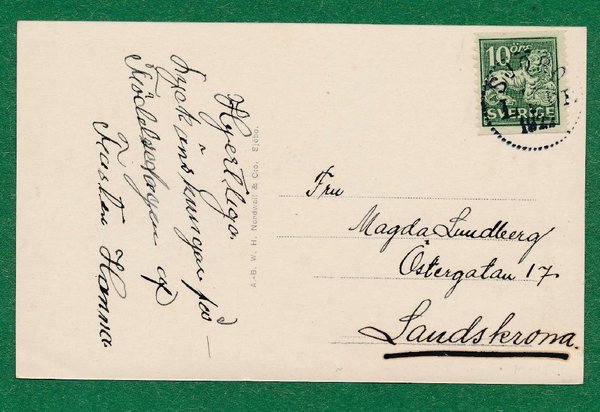 Hjertliga
Lyckönskningar på
Födelsedagen af
Faster Hanna.
A.-B. W. H. Nordwall & Cro. Sjöbo.
10 ÖRE
SVERIGE
SJÖBO
Fru
Magda Lundberg
Östergatan 17
Landskrona.